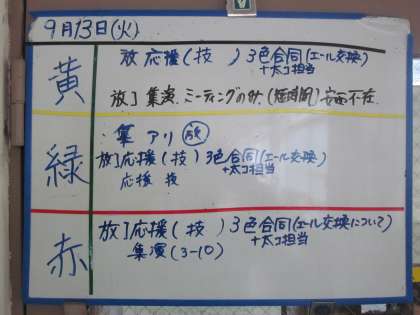 9月13日(火)
黄
放 応援(技 ) 3色合同(エール交換)
+太コ担当
放】集演 ミーティングのみ (短時間) 安西不在
緑
集 アリ
放】応援(技) 3色合同(エール交換)
+太コ担当
応援 技
赤
放】応援(技 ) 3色合同(エール交換について)
+太コ担当
集演(3-10)